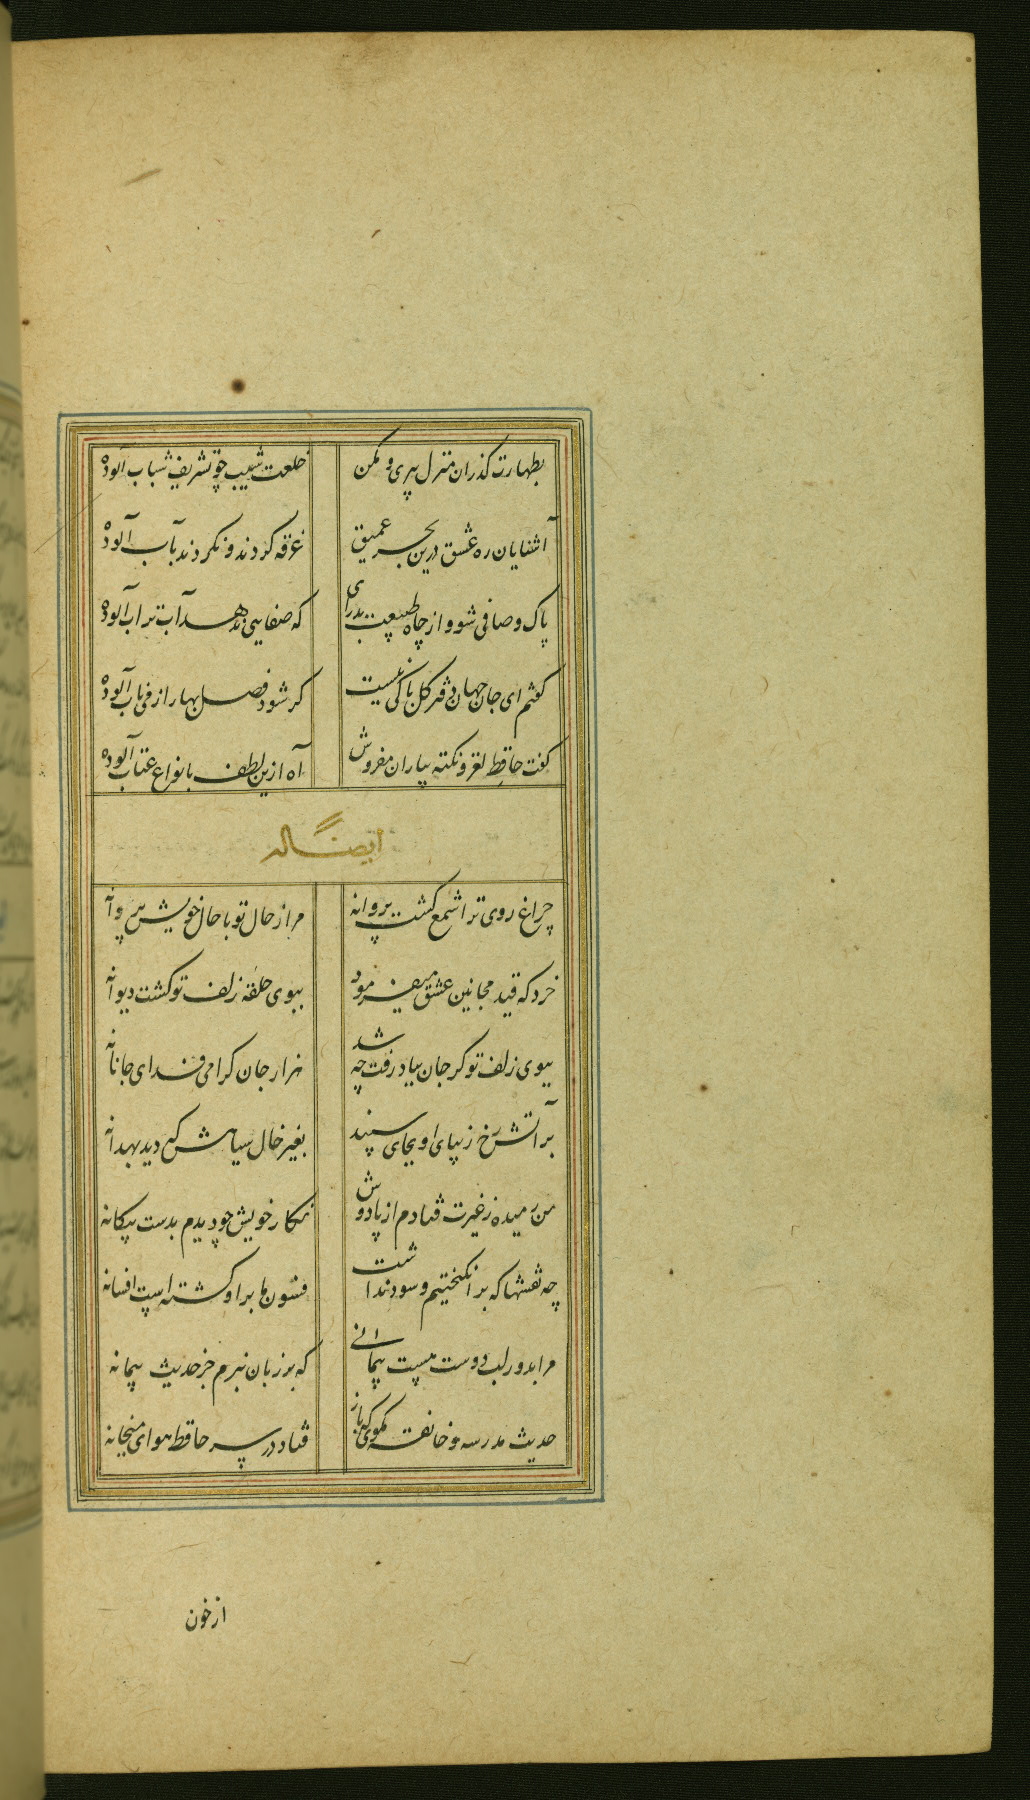 بطهارت گذران منزل پیری و مکن خلعت شیب چو تشریف شباب آلوده
آشنایان ره عشق درین بحر عمیق غرقه کردند و نکردند بآب آلوده
پاک و صافی شو و از چاه طبیعت بدرای که صفایی ندهد آب تراب آلوده
کفتم ای جان جهان دفتر کل باکی نیست کر شود فصل بهار از می ناب آلوده
کفت حافظ لغز و نکته بیاران مفروش آه ازین لطف بانواع عتاب آلوده
ایضاً له
چراغ روی ترا شمع کشت پروانه مرا ز حال تو با حال خویش پروانه
خرد که قید مجانین عشق میفرمود ببوی حلقه زلف تو کشت دیوانه
ببوی زلف تو کر جان بباد رفت چه شد هزار جان کرامی فدای جانانه
بر آتش رخ زیبای او بجای سپند بغیر خال سیاهش که دید بهدانه
من رمیده ز غیرت فتادم از پا دوش نکار خویش چو دیدم بدست بیکانه
چه نقشها که بر انکیختیم و سود نداشت فسون ما بر او کشته است افسانه
مرا بدور لب دوست هست پیمانی که بر زبان نبرم جز حدیث پیمانه
حدیث مدرسه و خانقه مکوی که باز فتاد در سر حافظ هوای میخانه
از خون